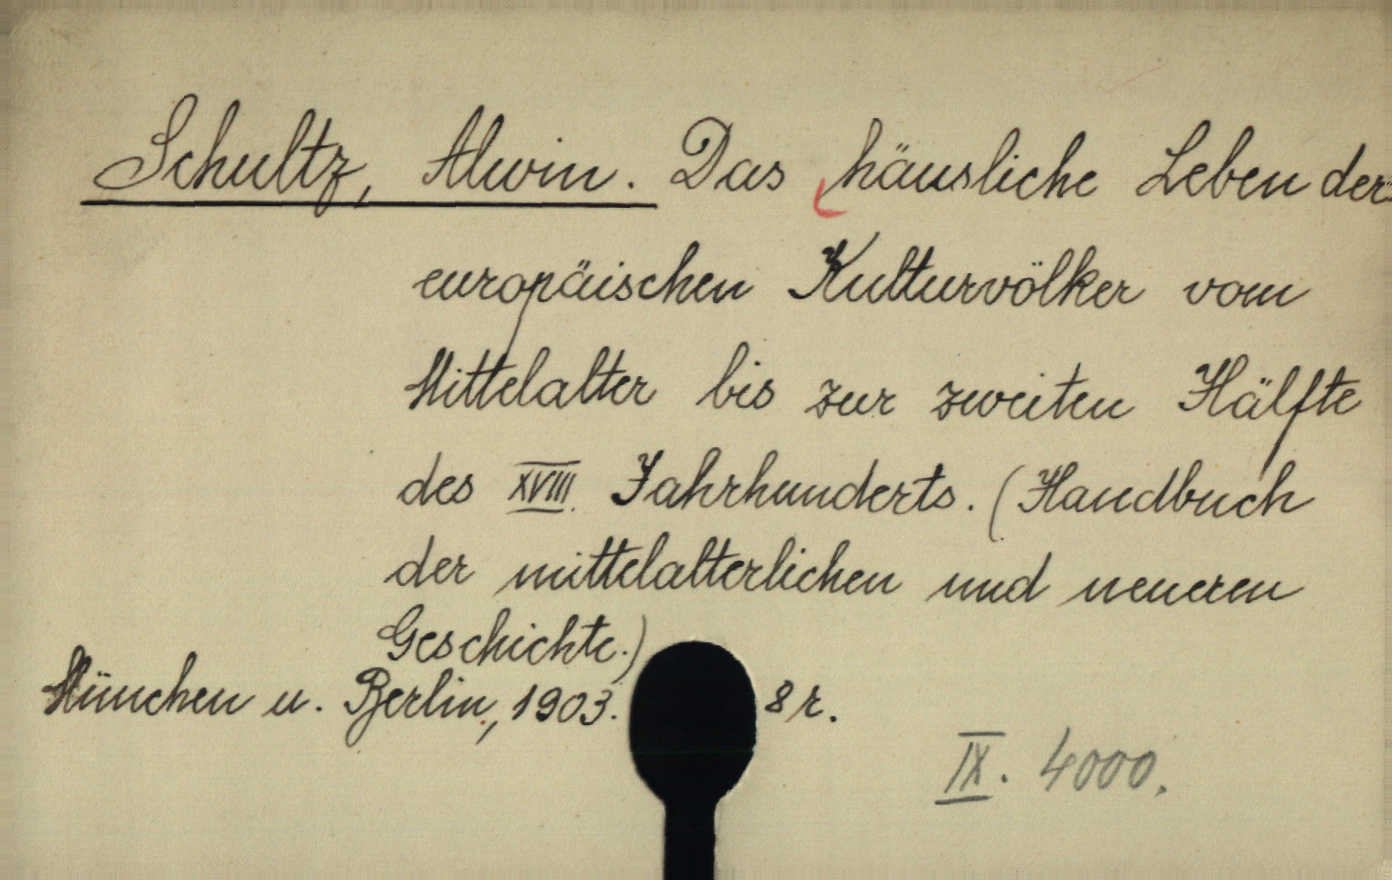 Schultz, Alwin. Das häusliche Leben der
europäischen Kulturvölker vom
Mittelalter bis zur zweiten Hälfte
des XVIII. Jahrhunderts. (Handbuch
der mittelalterlichen und neueren
Geschichte.)
München u. Berlin, 1903. 8r.
IX. 4000.